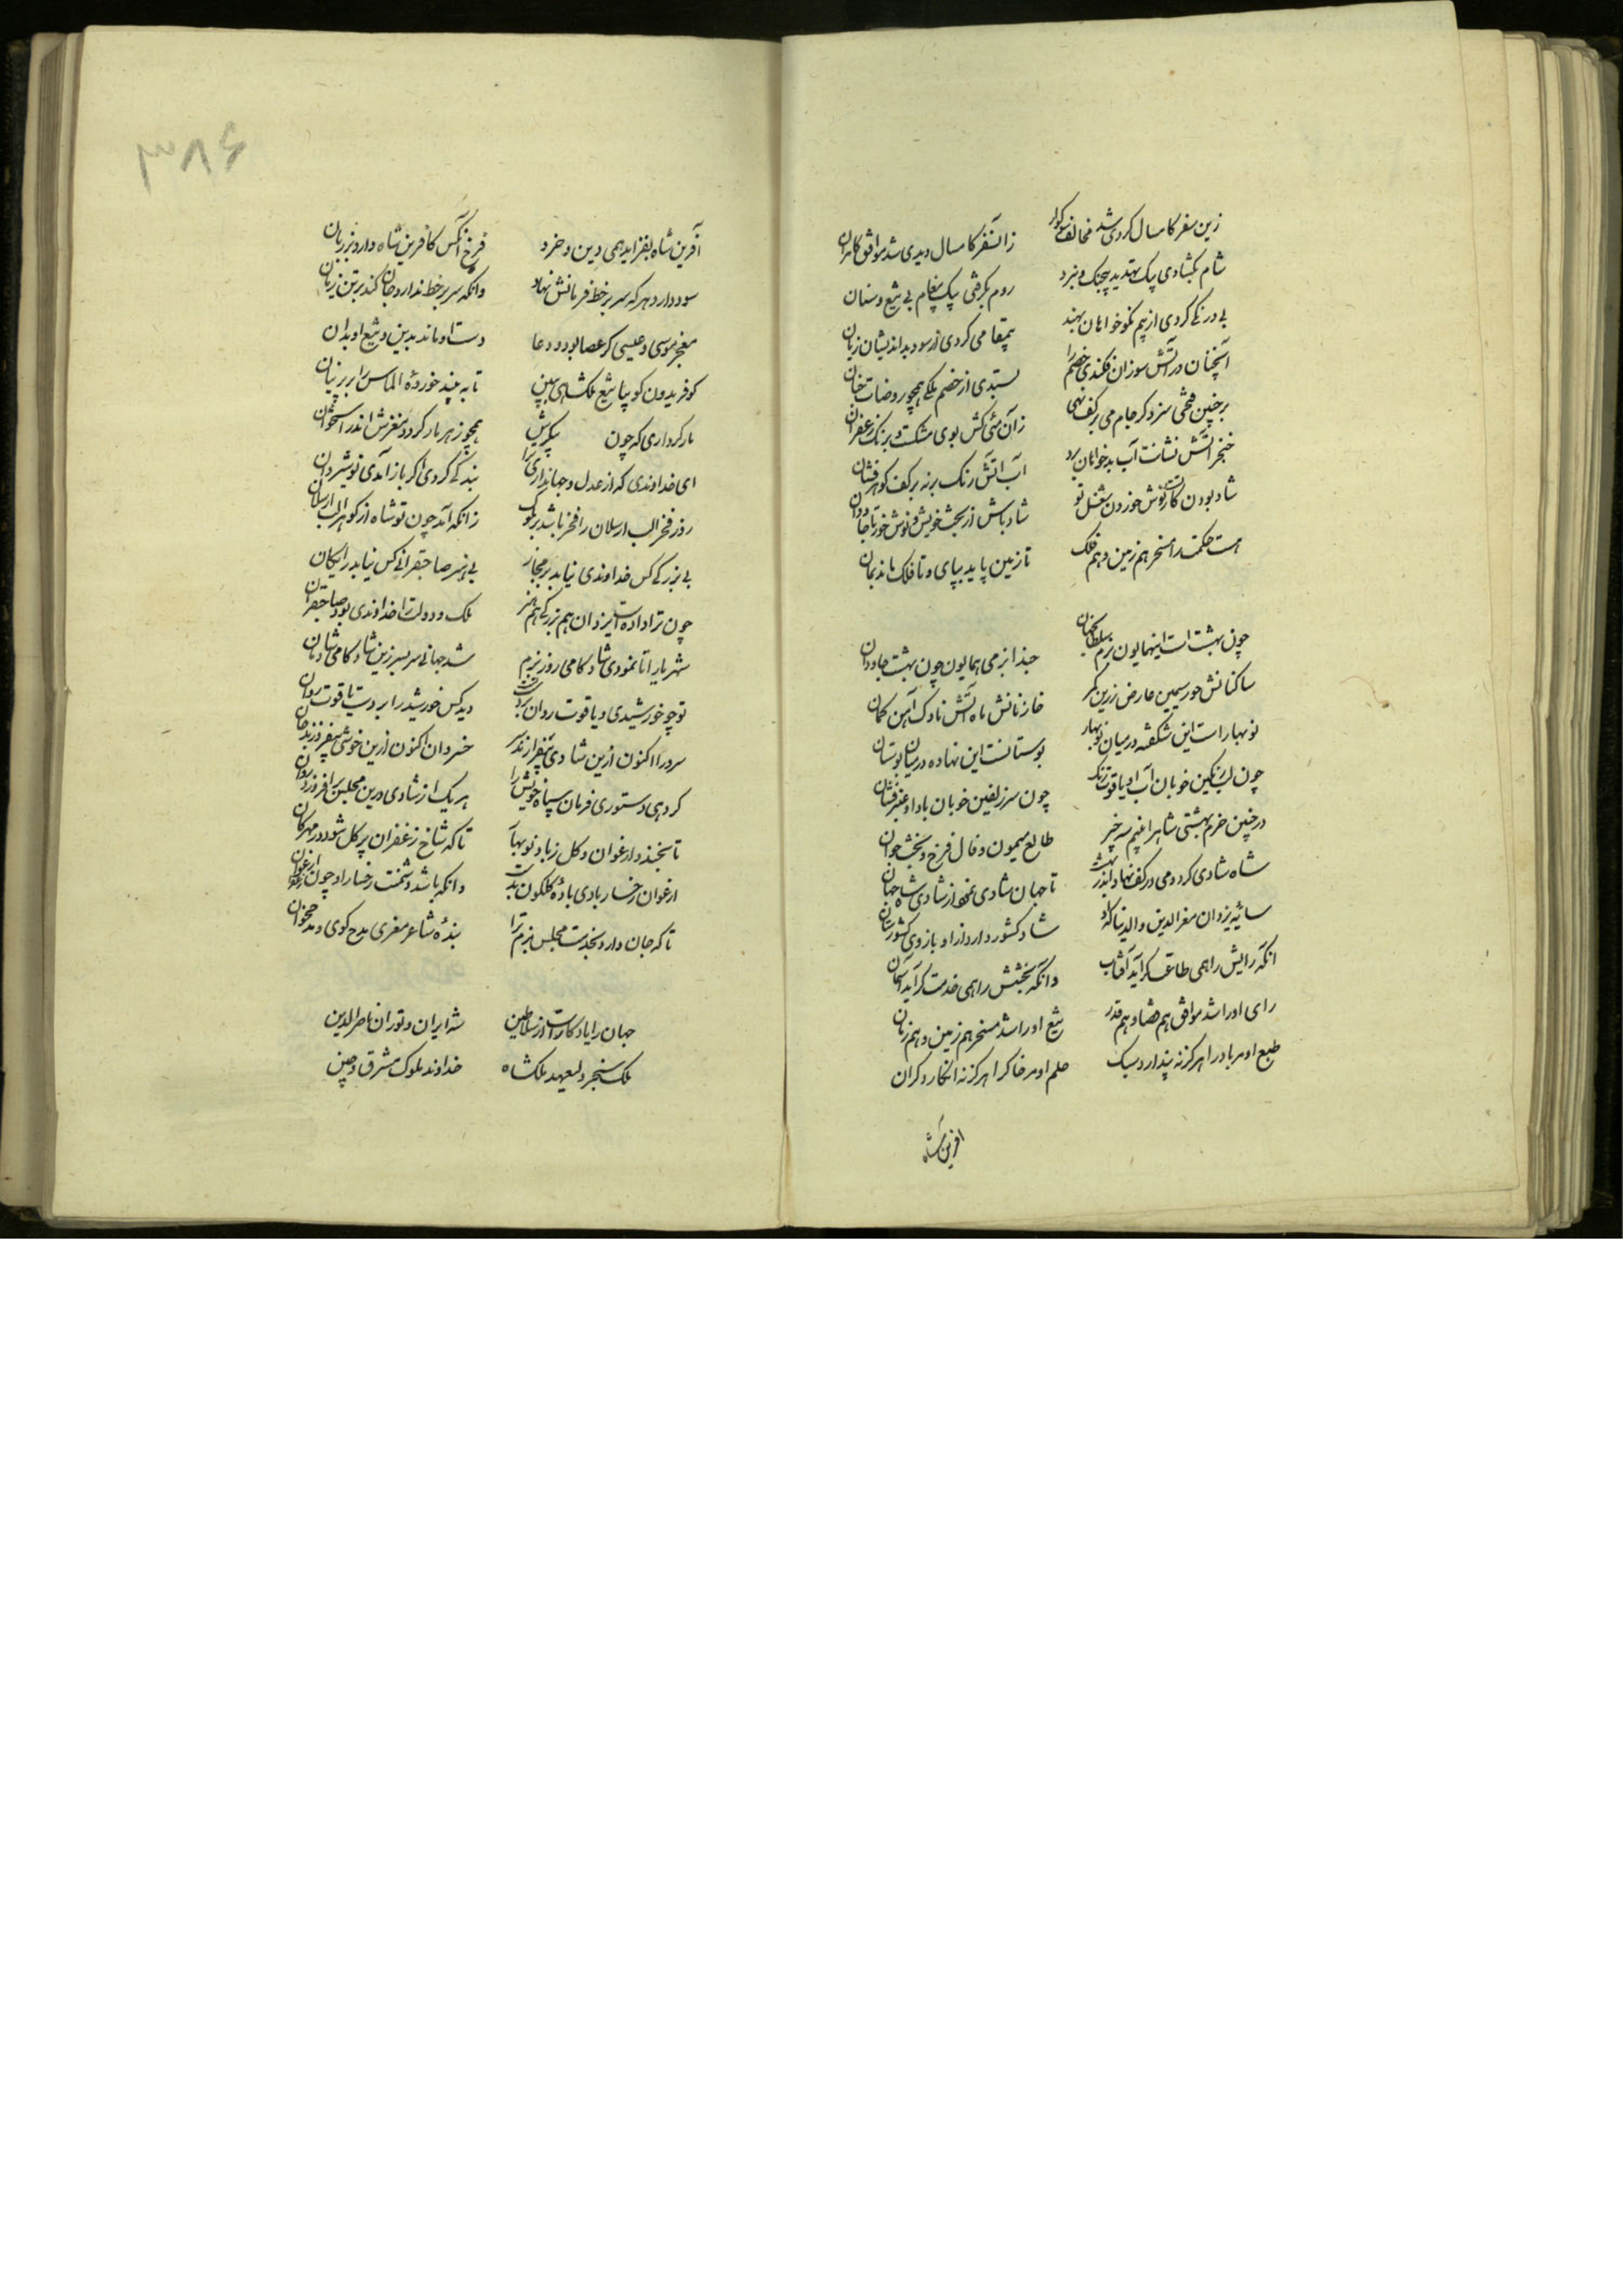 زین سفر کامسال کردی شد مخالف سوکوار زانسفر کامسال دیدی شد موافق کامران
شام بکشادی بیک تهدید بیجنک و نبرد روم بکرفتی بیک پیغام بی تیغ و سنان
بی درنکی کردی از بیم نکوخواهان بهند بیمقامی کردی از سود بداندیشان زیان
آنچنان در آتش سوزان فکندی خصم را بستدی از خصم ملکی همچو روضات جنان
بر چنین فتحی سزد کر جام می بر کف نهی زان مئی کش بوی مشکست و برنک زعفران
خنجر آتش فشانت آب بدخواهان ببرد آب آتش رنک برنه بر کف کوهرفشان
شاد بودن کار تست نوش خوردن شغل تو شاد باش از بخت خویش و نوش خور تا جاودان
هست حکمت را مسخر هم زمین و هم فلک تا زمین پاید بپای و تا فلک ماند بمان
چون بهشت است اینهمایون بزم سلطان جهان حبذا بزمی همایون چون بهشت جاودان
ساکنانش حور سیمین عارض زرین کمر خازنانش ماه آتش ناوک آهن کمان
نوبهار است این شکفته در میان نوبهار بوستانست این نهاده در میان بوستان
چون لب نکین خوبان آب او یاقوت رنک چون سر زلفین خوبان باد او عنبرفشان
در چنین خرم بهشتی شاه را بینم سه چیز طالع میمون و فال فرخ و بخت جوان
شاه شادی کرد و می در کف نهاد اندر بهشت تا جهان شادی کند از شادی شاه جهان
سایه یزدان معز الدین و الدنیا که او شاد کشور دارد از او بازوی کشورستان
انکه رایش را همی طاعت کر آید آفتاب وانکه بختش را همی خدمت کر آید آسمان
رای او را شد موافق هم قضا و هم قدر تیغ او را شد مسخر هم زمین و هم زمان
طبع او مر باد را هرکز نه پندارد سبک حلم او مر خاک را هرکز نه انکارد کران
افرین شاه
۳۸۶
آفرین شاه بفزاید همی دین و خرد فرخ آنکس کافرین شاه دارد بر زبان
سود دارد هر که سر بر خط فرمانش نهاد وانکه سر بر خط ندارد جان کند بر تن زیان
معجز موسی و عیسی کر عصا بود و دعا دست او ماند بدین و تیغ او بدان
کو فریدون کو بیا تیغ ملکشاهی ببین تا به بیند خورده الماس را بر پرنیان
مار کرداری که چون پیکرش همچو زهر مار کردد مغزش اندر استخوان
ای خداوندی که از عدل و جهانداری ترا بندکی کردی اکر باز آمدی نوشیروان
روز فخر الب ارسلان را فخر باشد بر ملوک زانکه آمد چون تو شاه از کوهر الب ارسلان
بی بزرکی کس خداوندی نیابد بر مجاز بی هنر صاحبقرانی کس نیابد رایکان
چون ترا دادست ایزدان هم بزرکی هم هنر ملک و دولت را خداوندی بود صاحبقران
شهریارا تا نمودی شادکامی روز بزم شد جهانی سربسر زین شادکامی شادمان
تو چو خورشیدی و یاقوت روان بر دست تست دید کس خورشید را بر دست یاقوت روان
سرورا اکنون ازین شادی بیفرازند سر خسروان اکنون ازین خوشی بیفروزند جان
کر دهی دستوری فرمان سپاه خویش را هر یک از شادی درین مجلس برافروزد روان
تا بخندد ارغوان و کل زباد نوبهار تا که شاخ زعفران پر کل شود در مهرکان
ارغوان رخسار بادی باده کلکون بدست وانکه باشد دشمنت رخسار او چون زعفران
تا که جان دارد بخدمت مجلس بزم ترا بنده شاعر معزی مدح کوی و مدح خوان
جهان را یادکارست از سلاطین شه ایران و توران ناصر الدین
ملک سنجر ولیعهد ملکشاه خداوند ملوک مشرق و چین